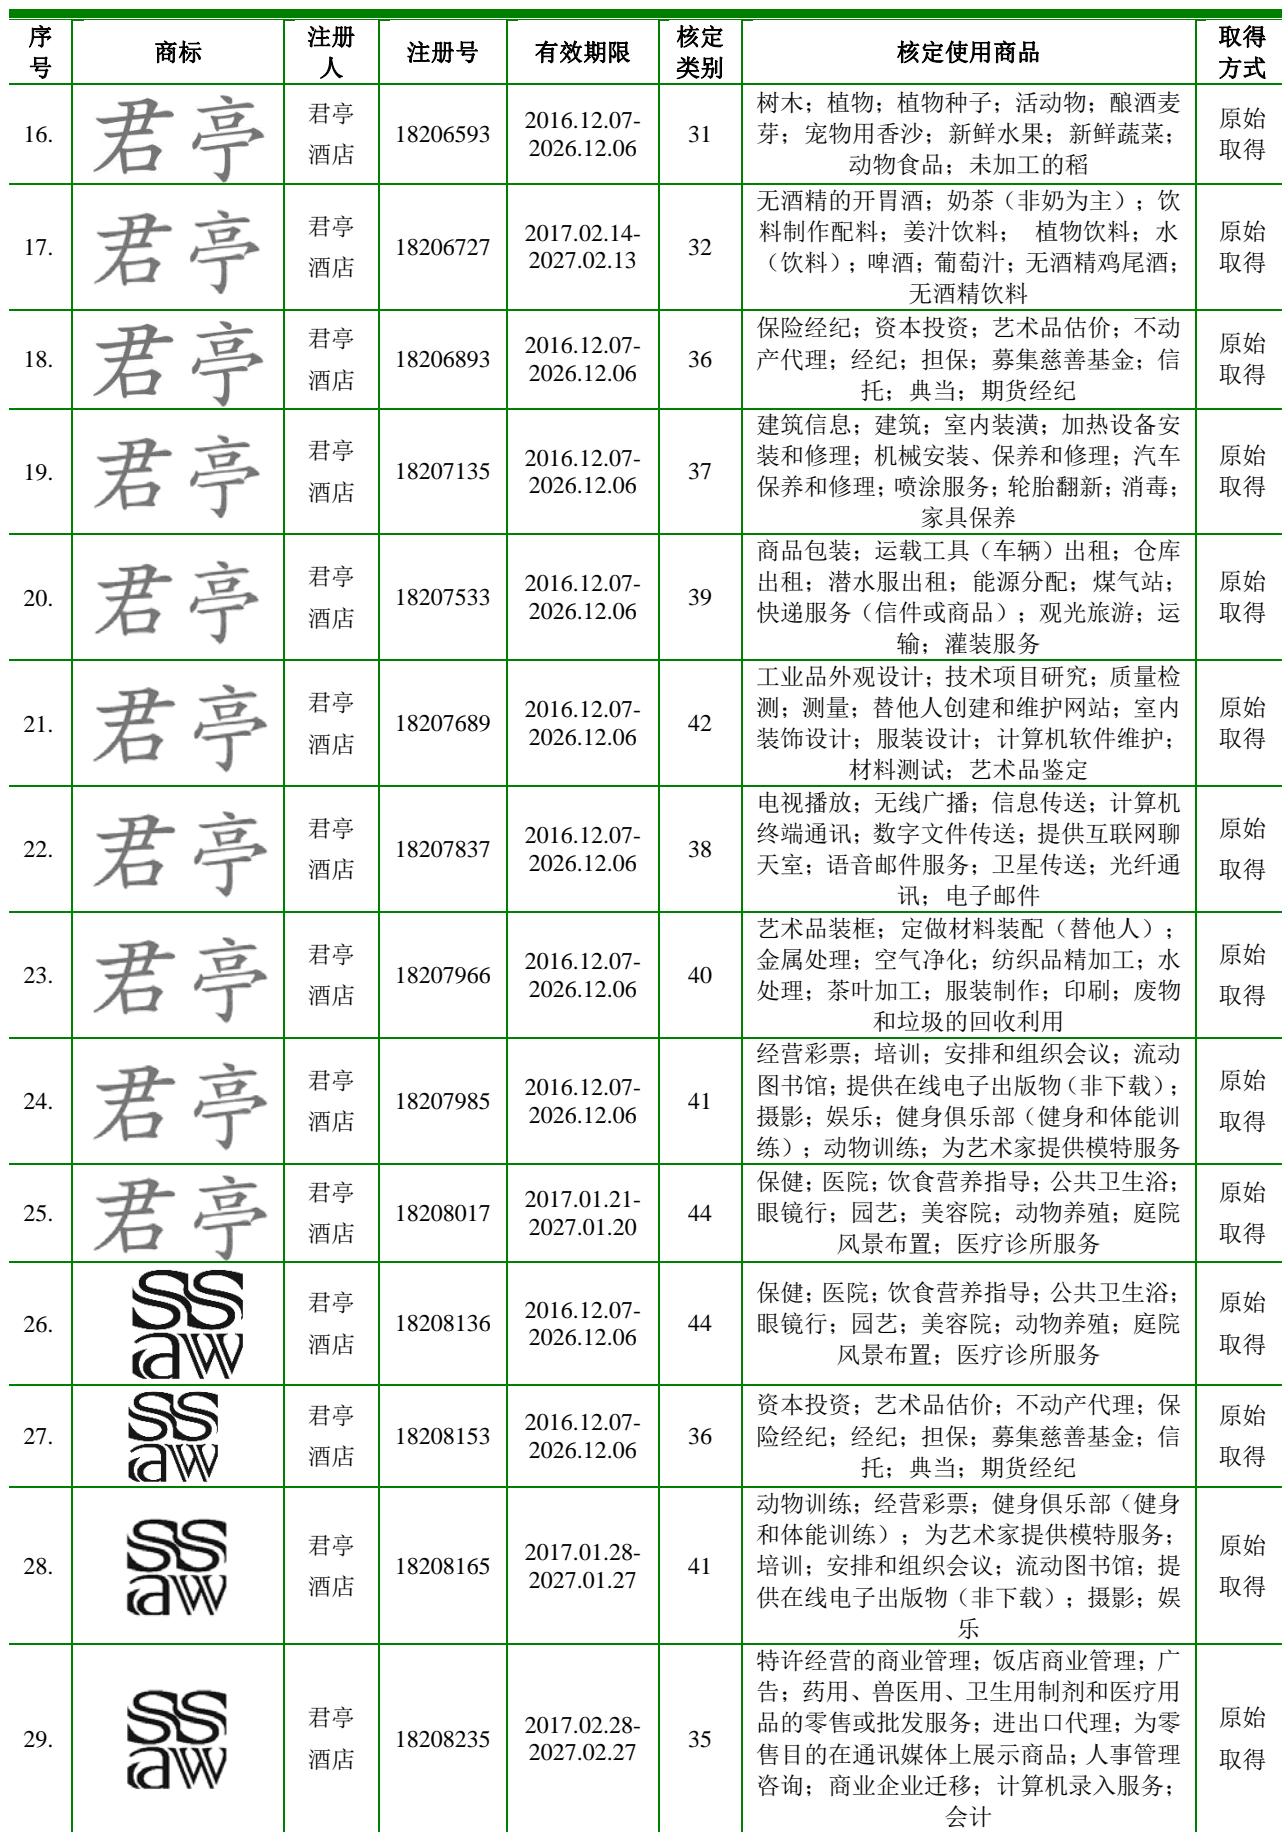 序号 商标 注册人 注册号 有效期限 核定类别 核定使用商品 取得方式
16. 君亭 君亭酒店 18206593 2016.12.07-2026.12.06 31 树木；植物；植物种子；活动物；酿酒麦芽；宠物用香沙；新鲜水果；新鲜蔬菜；动物食品；未加工的稻 原始取得
17. 君亭 君亭酒店 18206727 2017.02.14-2027.02.13 32 无酒精的开胃酒；奶茶（非奶为主）；饮料制作配料；姜汁饮料； 植物饮料；水（饮料）；啤酒；葡萄汁；无酒精鸡尾酒；无酒精饮料 原始取得
18. 君亭 君亭酒店 18206893 2016.12.07-2026.12.06 36 保险经纪；资本投资；艺术品估价；不动产代理；经纪；担保；募集慈善基金；信托；典当；期货经纪 原始取得
19. 君亭 君亭酒店 18207135 2016.12.07-2026.12.06 37 建筑信息；建筑；室内装潢；加热设备安装和修理；机械安装、保养和修理；汽车保养和修理；喷涂服务；轮胎翻新；消毒；家具保养 原始取得
20. 君亭 君亭酒店 18207533 2016.12.07-2026.12.06 39 商品包装；运载工具（车辆）出租；仓库出租；潜水服出租；能源分配；煤气站；快递服务（信件或商品）；观光旅游；运输；灌装服务 原始取得
21. 君亭 君亭酒店 18207689 2016.12.07-2026.12.06 42 工业品外观设计；技术项目研究；质量检测；测量；替他人创建和维护网站；室内装饰设计；服装设计；计算机软件维护；材料测试；艺术品鉴定 原始取得
22. 君亭 君亭酒店 18207837 2016.12.07-2026.12.06 38 电视播放；无线广播；信息传送；计算机终端通讯；数字文件传送；提供互联网聊天室；语音邮件服务；卫星传送；光纤通讯；电子邮件 原始取得
23. 君亭 君亭酒店 18207966 2016.12.07-2026.12.06 40 艺术品装框；定做材料装配（替他人）；金属处理；空气净化；纺织品精加工；水处理；茶叶加工；服装制作；印刷；废物和垃圾的回收利用 原始取得
24. 君亭 君亭酒店 18207985 2016.12.07-2026.12.06 41 经营彩票；培训；安排和组织会议；流动图书馆；提供在线电子出版物（非下载）；摄影；娱乐；健身俱乐部（健身和体能训练）；动物训练；为艺术家提供模特服务 原始取得
25. 君亭 君亭酒店 18208017 2017.01.21-2027.01.20 44 保健；医院；饮食营养指导；公共卫生浴；眼镜行；园艺；美容院；动物养殖；庭院风景布置；医疗诊所服务 原始取得
26. SSaw 君亭酒店 18208136 2016.12.07-2026.12.06 44 保健；医院；饮食营养指导；公共卫生浴；眼镜行；园艺；美容院；动物养殖；庭院风景布置；医疗诊所服务 原始取得
27. SSaw 君亭酒店 18208153 2016.12.07-2026.12.06 36 资本投资；艺术品估价；不动产代理；保险经纪；经纪；担保；募集慈善基金；信托；典当；期货经纪 原始取得
28. SSaw 君亭酒店 18208165 2017.01.28-2027.01.27 41 动物训练；经营彩票；健身俱乐部（健身和体能训练）；为艺术家提供模特服务；培训；安排和组织会议；流动图书馆；提供在线电子出版物（非下载）；摄影；娱乐 原始取得
29. SSaw 君亭酒店 18208235 2017.02.28-2027.02.27 35 特许经营的商业管理；饭店商业管理；广告；药用、兽医用、卫生用制剂和医疗用品的零售或批发服务；进出口代理；为零售目的在通讯媒体上展示商品；人事管理咨询；商业企业迁移；计算机录入服务；会计 原始取得